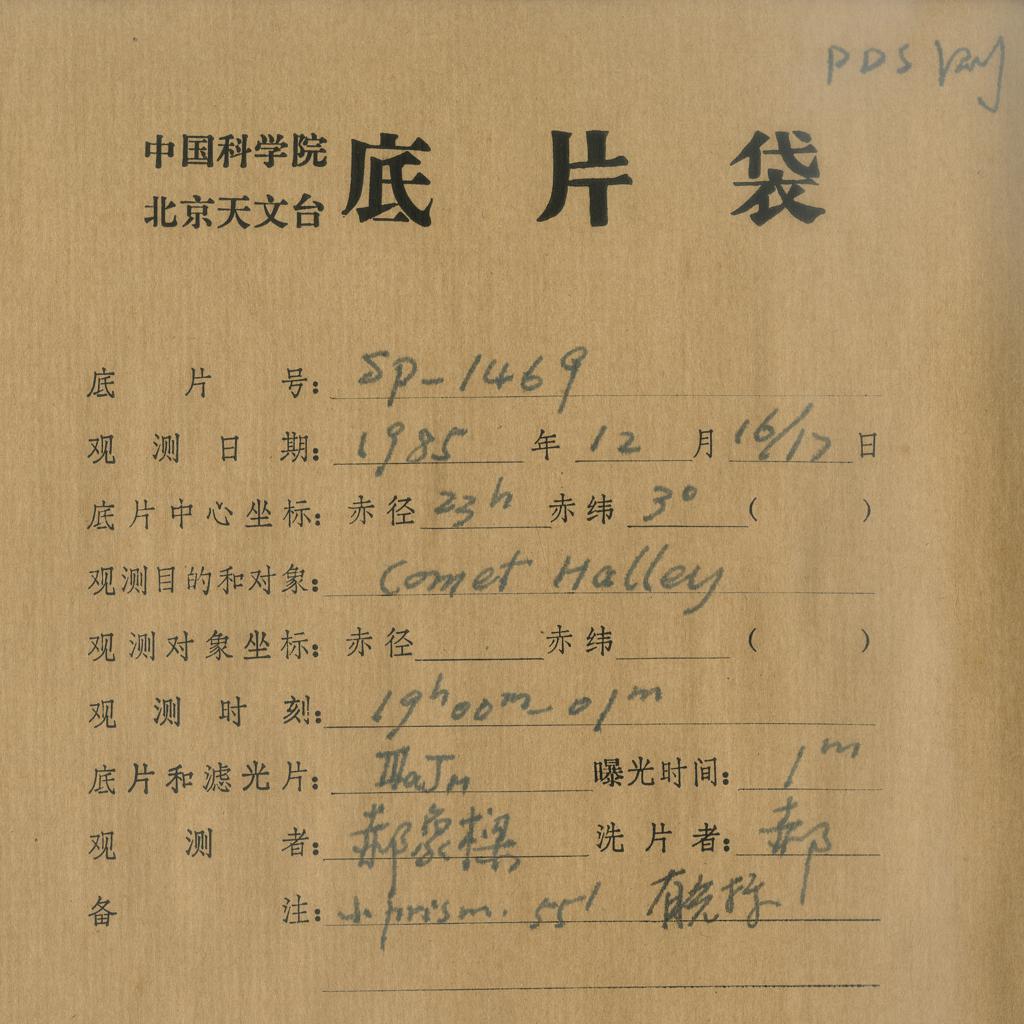 PDS
中国科学院
北京天文台
底片袋
底片号：SP-1469
观测日期：1985年12月16/17日
底片中心坐标：赤径23h赤纬3°（ ）
观测目的和对象：Comet Halley
观测对象坐标：赤径 赤纬 （ ）
观测时刻：19h00m-01m
底片和滤光片：IIIaJ 曝光时间：1m
观测者：郝象樑 洗片者：郝
备注：小prism. 55'